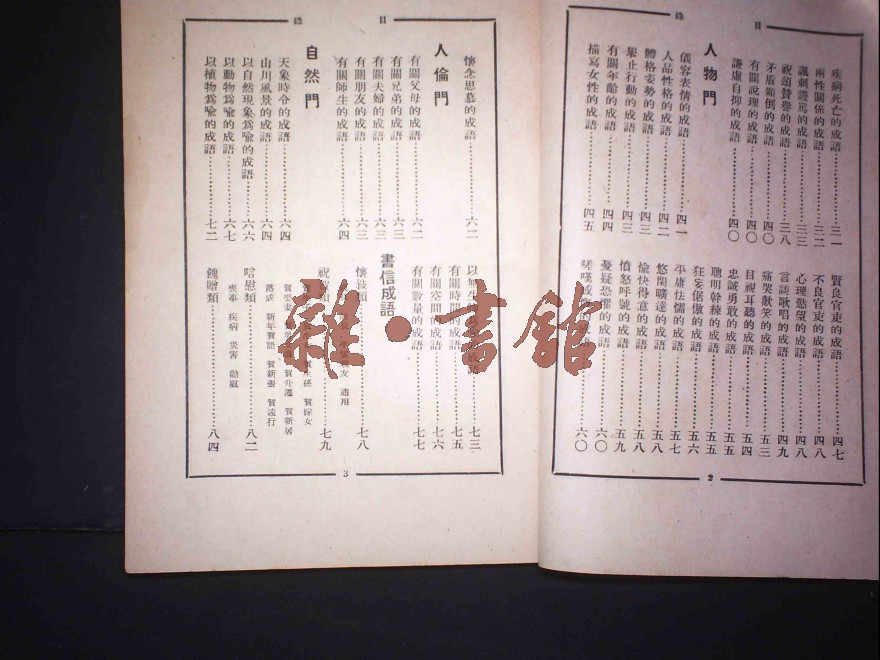 目錄
疾病死亡的成語……三一
兩性關係的成語……三二
諷刺謾罵的成語……三三
祝頌聲譽的成語……三八
矛盾顛倒的成語……四〇
有關說理的成語……四〇
謙虛自抑的成語……四〇
人物門
儀容表情的成語……四一
人品性格的成語……四二
體格姿勢的成語……四三
舉止行動的成語……四三
有關年齡的成語……四四
描寫女性的成語……四五
賢良官吏的成語……四七
不良官吏的成語……四八
心理慾望的成語……四八
言談歌唱的成語……四九
痛哭歡笑的成語……五三
目視耳聽的成語……五四
忠誠勇敢的成語……五五
聰明幹練的成語……五五
狂妄倨傲的成語……五六
平庸怯懦的成語……五七
悠閒曠達的成語……五八
愉快得意的成語……五八
憤怒呼號的成語……五九
憂疑恐懼的成語……六〇
嗟嘆 的成語……六〇
2
目錄
懷念思慕的成語……六二
人倫門
有關父母的成語……六二
有關兄弟的成語……六三
有關夫婦的成語……六三
有關朋友的成語……六三
有關師生的成語……六四
自然門
天象時令的成語……六四
山川風景的成語……六四
以自然現象爲喩的成語……六六
以動物爲喩的成語……六七
以植物爲喩的成語……七二
以無生 成語……七三
有關時間的成語……七五
有關空間的成語……七六
有關數量的成語……七七
書信成語
懷 類……七八
友 通用
祝 類……七九
賀 孫 賀嫁女
賀娶妻 賀升遷 賀新居
落成 新年賀語 賀新張 賀遠行
唁慰類……八二
喪事 疾病 災害 勖勵
餽贈類……八四
3
雜·書館